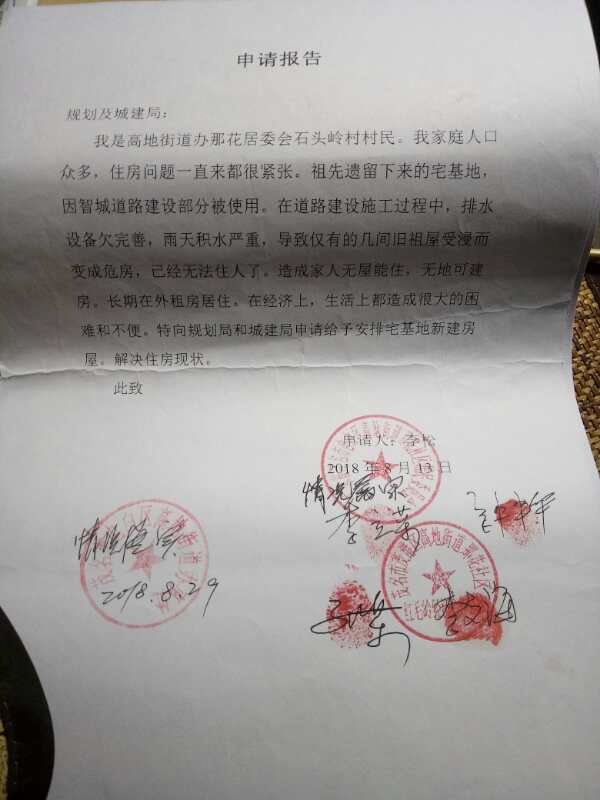 申请报告
规划及城建局：
我是高地街道办那花居委会石头岭村村民。我家庭人口
众多，住房问题一直来都很紧张。祖先遗留下来的宅基地，
因智城道路建设部分被使用。在道路建设施工过程中，排水
设备欠完善，雨天积水严重，导致仅有的几间旧祖屋受浸而
变成危房，已经无法住人了。造成家人无屋能住，无地可建
房。长期在外租房居住。在经济上，生活上都造成很大的困
难和不便。特向规划局和城建局申请给予安排宅基地新建房
屋。解决住房现状。
此致
申请人：李松
2018年8月13日
情况属实
情况属实
2018.8.29